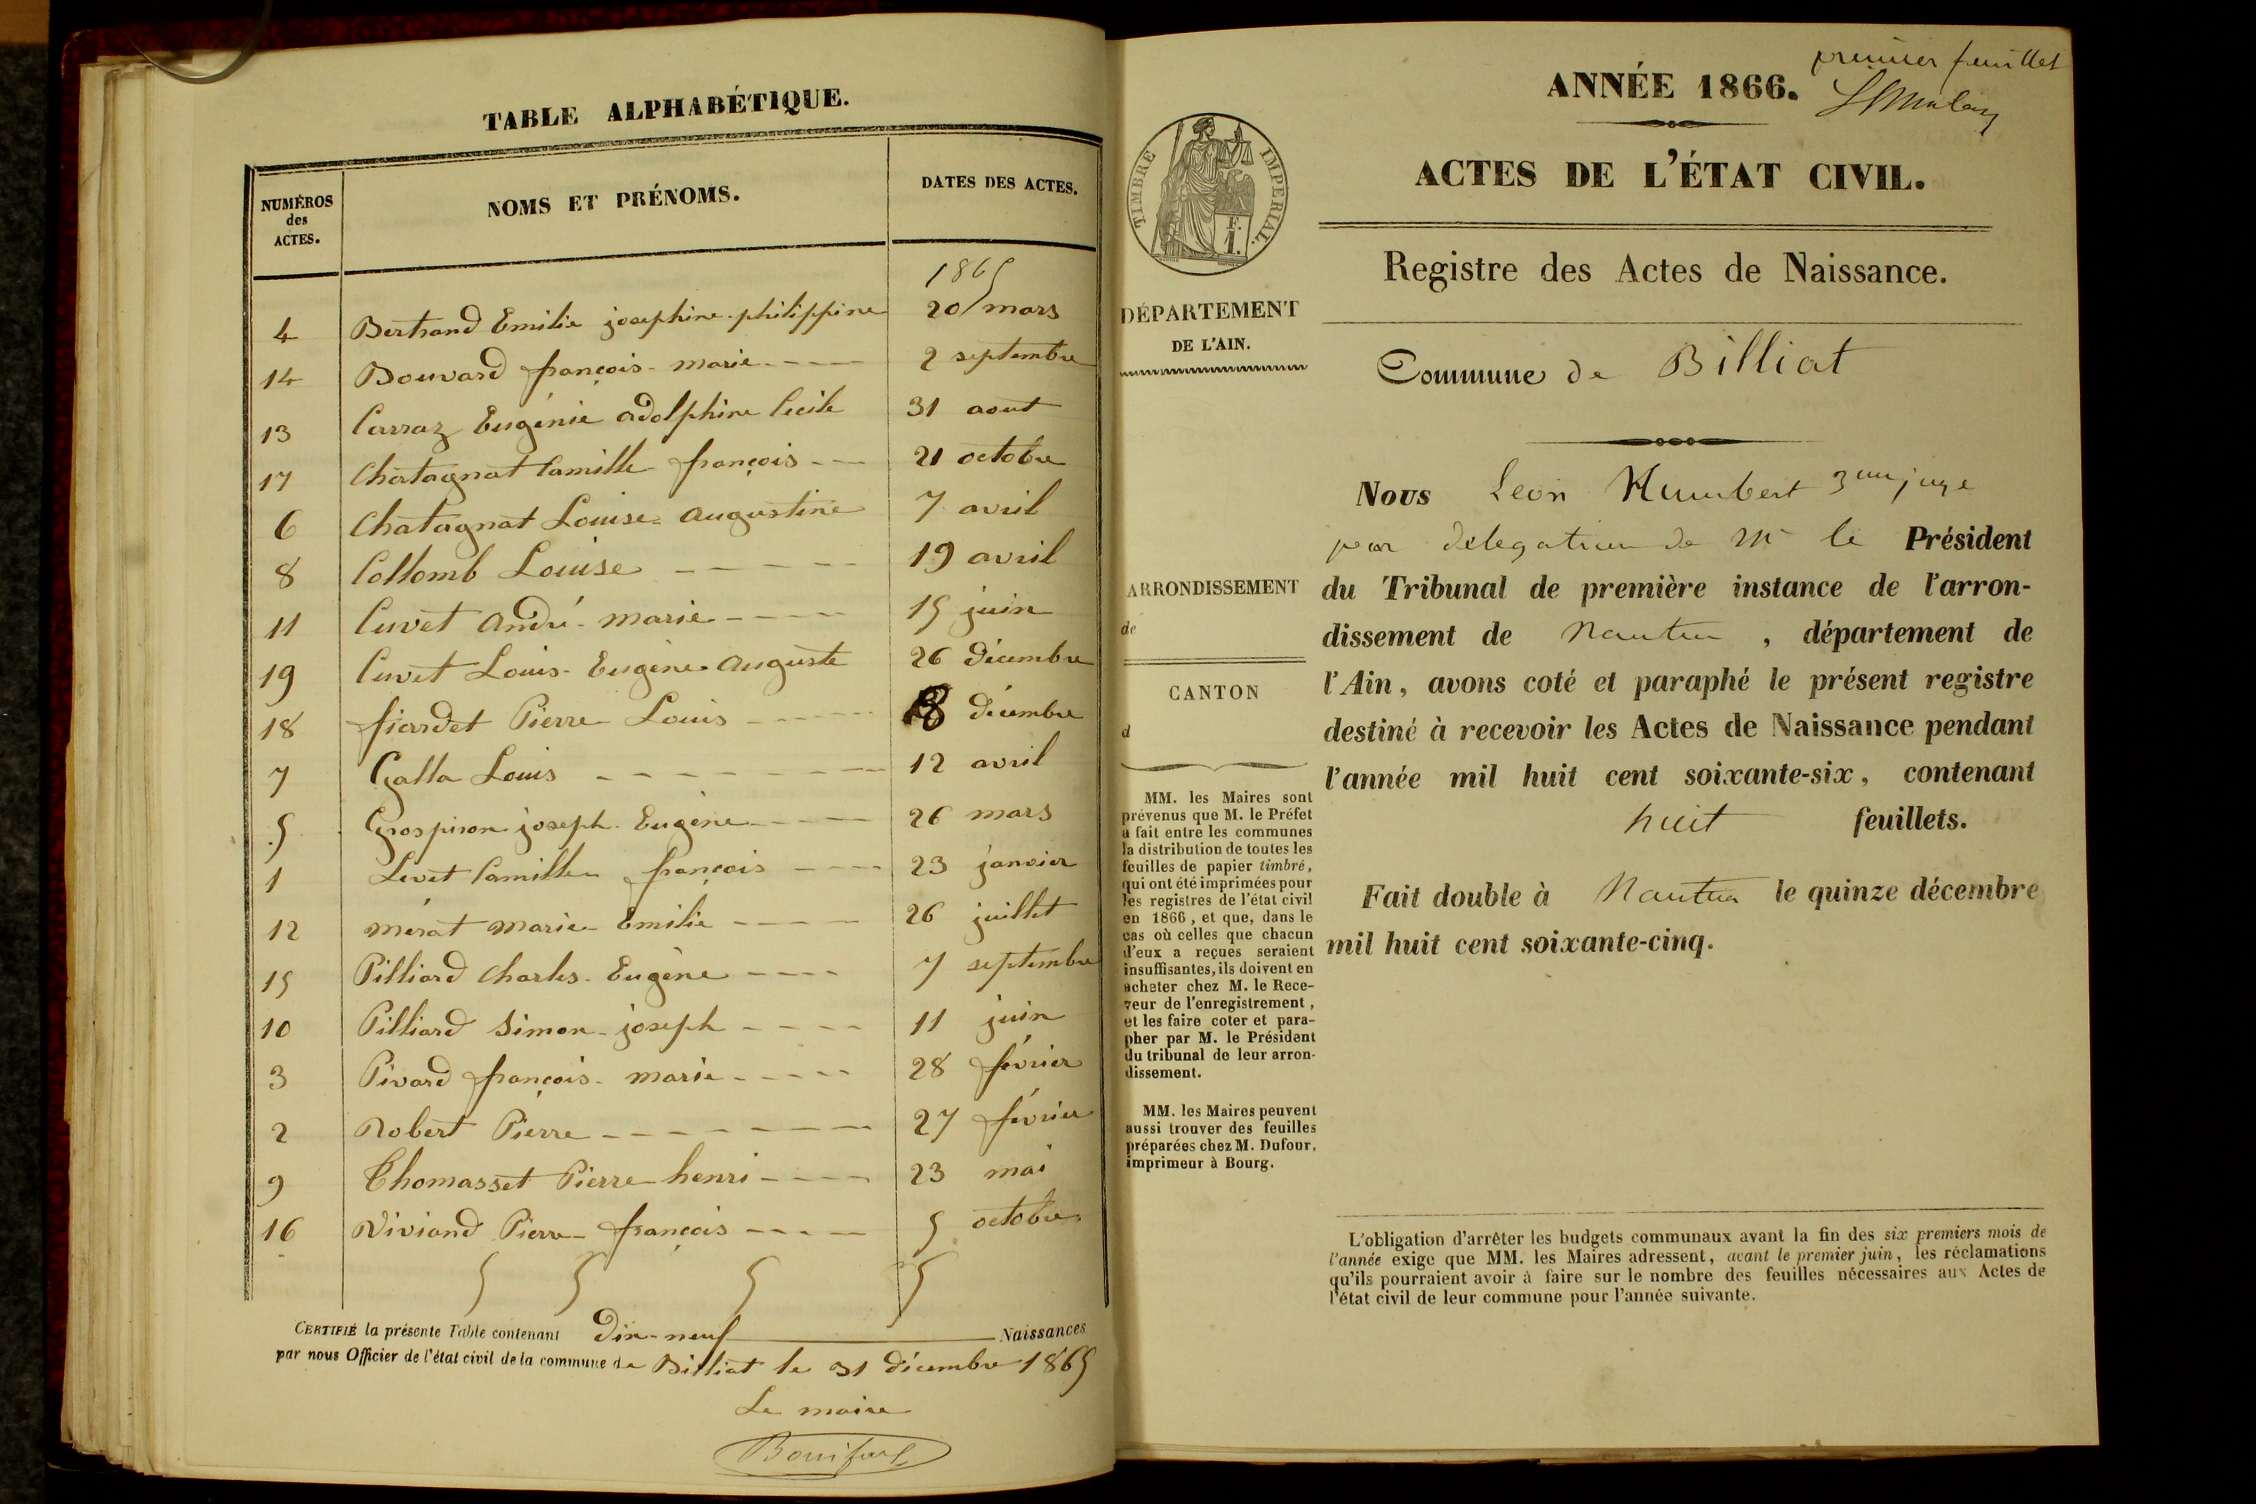 TABLE ALPHABÉTIQUE.
NUMÉROS des ACTES. NOMS ET PRÉNOMS. DATES DES ACTES.
1865
4 Bertrand Emilie josephine philippine 20 mars
14 Bouvard françois-marie 2 septembre
13 Carraz Eugénie adolphine Cecile 31 aout
17 Chatagnat Camille françois 21 octobre
6 Chatagnat Louise augustine 7 avril
8 Collomb Louise 19 avril
11 Cuvet andré-marie 15 juin
19 Cuvet Louis-Eugène auguste 26 décembre
18 fiardet Pierre Louis 8 décembre
7 Galla Louis 12 avril
5 Grospiron joseph Eugène 26 mars
1 Levet Camille françois 23 janvier
12 mérat marie Emilie 26 juillet
15 Pilliard Charles-Eugène 7 septembre
10 Pilliard Simon-joseph 11 juin
3 Pivard françois-marie 28 février
2 Robert Pierre 27 février
9 Thomasset Pierre henri 23 mai
16 Viviand Pierre françois 5 octobre
CERTIFIÉ la présente Table contenant Dix-neuf Naissances
par nous Officier de l'état civil de la commune de Billiat le 31 décembre 1865
Le maire
premier feuillet
ANNÉE 1866.
TIMBRE IMPERIAL.
F. 1.
ACTES DE L'ÉTAT CIVIL.
Registre des Actes de Naissance.
DÉPARTEMENT
DE L'AIN.
Commune de Billiat
ARRONDISSEMENT
de
CANTON
d
MM. les Maires sont
prévenus que M. le Préfet
a fait entre les communes
la distribution de toutes les
feuilles de papier timbré,
qui ont été imprimées pour
les registres de l'état civil
en 1866, et que, dans le
cas où celles que chacun
d'eux a reçues seraient
insuffisantes, ils doivent en
acheter chez M. le Rece-
veur de l'enregistrement,
et les faire coter et para-
pher par M. le Président
du tribunal de leur arron-
dissement.
MM. les Maires peuvent
aussi trouver des feuilles
préparées chez M. Dufour,
imprimeur à Bourg.
Nous Leon Humbert 3me juge
par délégation de Mr le Président
du Tribunal de première instance de l'arron-
dissement de Nantua, département de
l'Ain, avons coté et paraphé le présent registre
destiné à recevoir les Actes de Naissance pendant
l'année mil huit cent soixante-six, contenant
huit feuillets.
Fait double à Nantua le quinze décembre
mil huit cent soixante-cinq.
L'obligation d'arrêter les budgets communaux avant la fin des six premiers mois de
l'année exige que MM. les Maires adressent, avant le premier juin, les réclamations
qu'ils pourraient avoir à faire sur le nombre des feuilles nécessaires aux Actes de
l'état civil de leur commune pour l'année suivante.